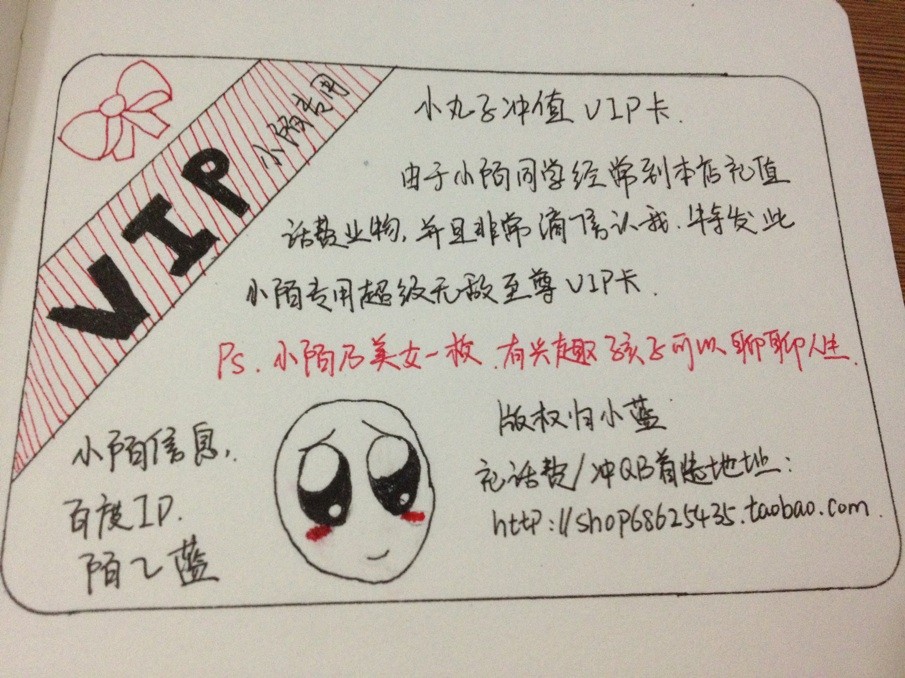 VIP
小陌专用
小丸子冲值 VIP卡.
由于小陌同学经常到本店充值
话费业物,并且非常满信认我.特发此
小陌专用超级无敌至尊VIP卡.
Ps.小陌乃美女一枚.有兴趣孩子可以聊聊人生.
小陌信息,.
百度ID.
陌乙蓝
版权归小蓝
充话费/冲QB首选地址:
http://shop68625435.taobao.com.